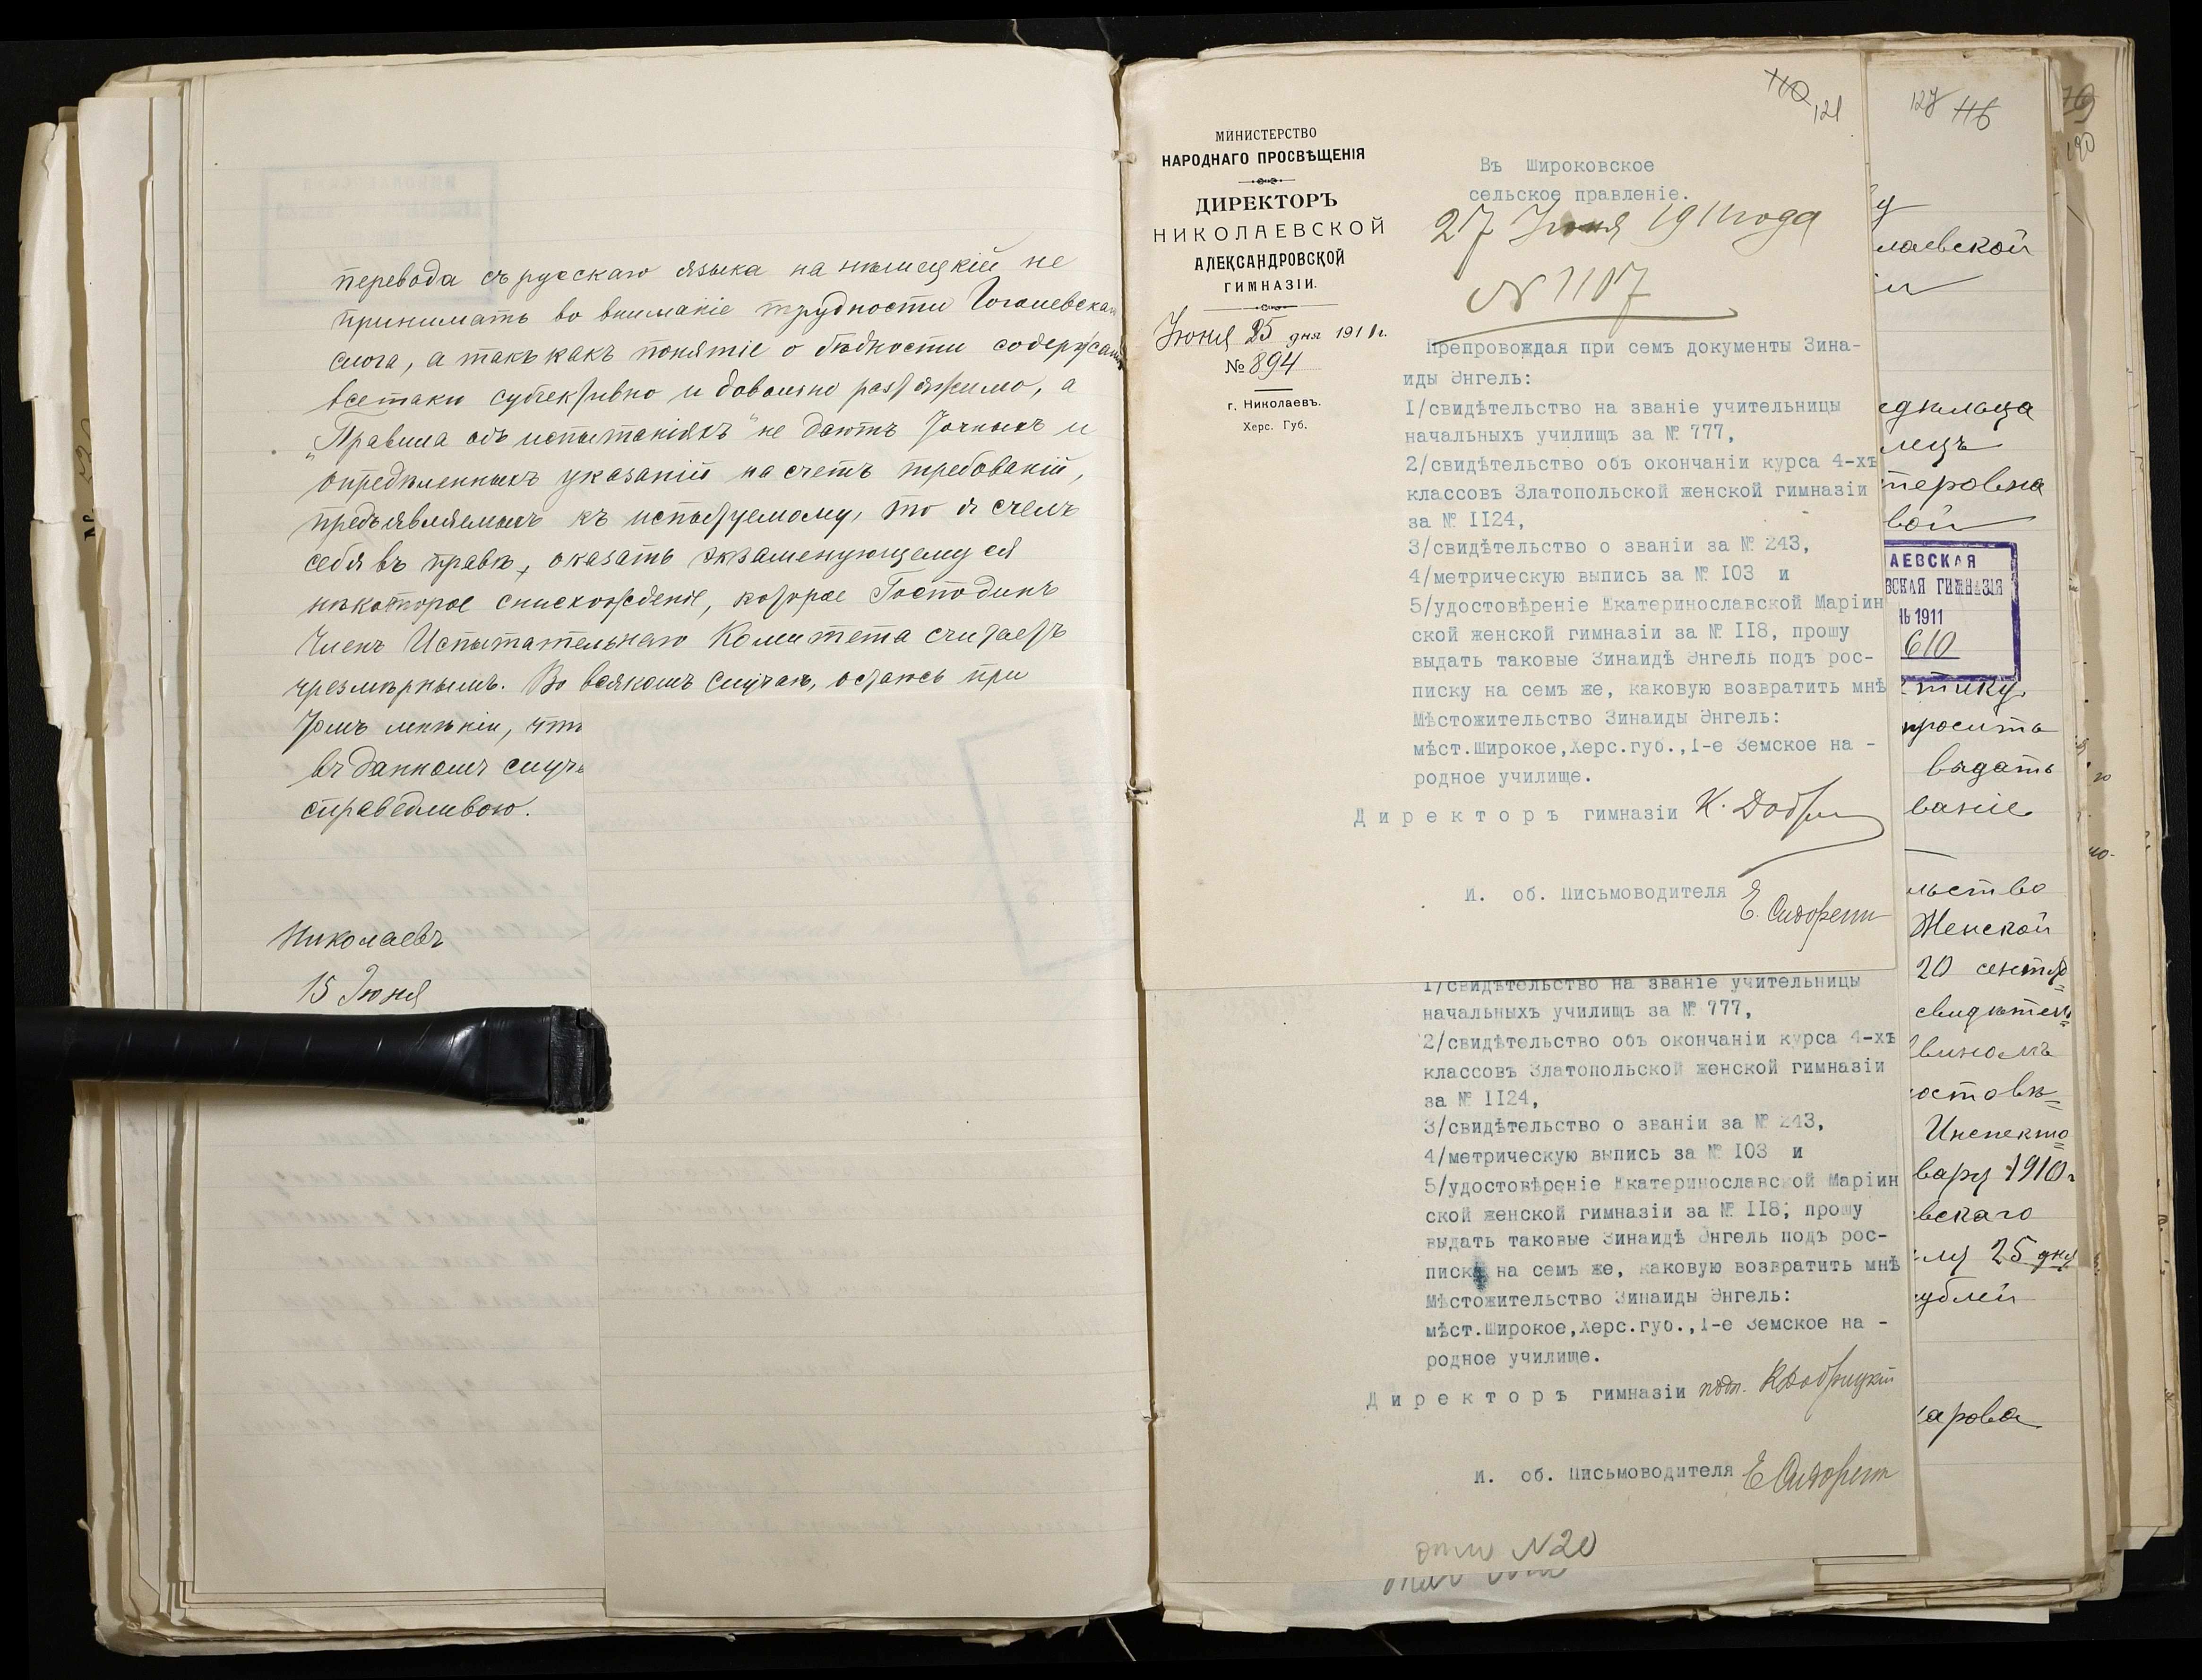 перевода съ русскаго языка на нѣмецкій не
принимать во вниманіе трудности Гоголевска
слога, а такъ какъ понятіе о бѣдности содержан
всетаки субъективно и довольно растяжимо, а
„Правила объ испытаніяхъ" не даютъ точныхъ и
опредѣленныхъ указаній на счетъ требованій,
предъявляемыхъ къ испытуемому, то я счелъ
себя въ правѣ, оказать экзаменующемуся
нѣкоторое снисхожденіе, которое Господинъ
Членъ Испытательнаго Комитета считаетъ
чрезмѣрнымъ. Во всякомъ случаѣ, остаюсь при
томъ мнѣніи, что
въ данномъ случ
справедливою.
Николаевъ
15 Іюня
110
121
МИНИСТЕРСТВО
НАРОДНАГО ПРОСВѢЩЕНІЯ
ДИРЕКТОРЪ
НИКОЛАЕВСКОЙ
АЛЕКСАНДРОВСКОЙ
ГИМНАЗІИ.
Іюня 25 дня 1911 г.
№ 894
г. Николаевъ.
Херс. Губ.
Въ Широковское
сельское правленіе.
27 Іюня 1911 года
N 1107
Препровождая при семъ документы Зина-
иды Энгель:
I/свидѣтельство на званіе учительницы
начальныхъ училищъ за № 777,
2/свидѣтельство объ окончаніи курса 4-хъ
классовъ Златопольской женской гимназіи
за № II24,
3/свидѣтельство о званіи за № 243,
4/метрическую выпись за № I03 и
5/удостовѣреніе Екатеринославской Маріин
ской женской гимназіи за № II8, прошу
выдать таковые Зинаидѣ Энгель подъ рос-
писку на семъ же, каковую возвратить мнѣ
Мѣстожительство Зинаиды Энгель:
мѣст.Широкое,Херс.губ.,I-е Земское на -
родное училище.
Директоръ гимназіи К.
И. об. Письмоводителя Е.
I/свидѣтельство на званіе учительницы
начальныхъ училищъ за № 777,
2/свидѣтельство объ окончаніи курса 4-хъ
классовъ Златопольской женской гимназіи
за № II24,
3/свидѣтельство о званіи за № 243,
4/метрическую выпись за № I03 и
5/удостовѣреніе Екатеринославской Маріин
ской женской гимназіи за № II8; прошу
выдать таковые Зинаидѣ Энгель подъ рос-
писку на семъ же, каковую возвратить мнѣ
Мѣстожительство Зинаиды Энгель:
мѣст.Широкое,Херс.губ.,I-е Земское на -
родное училище.
Директоръ гимназіи подп.
И. об. Письмоводителя Е
N20
127 116
у
лаевской
ии
лецъ
теровна
вой
АЕВСКАЯ
ВСКАЯ ГИМНАЗІЯ
НЬ 1911
610
тику
просить
выдать
ваніе
льство
Женской
20 сентяб
свидѣтель
остовѣ
Инспекто
варя 1910 г
вскаго
25 дня
рублей
арова
120